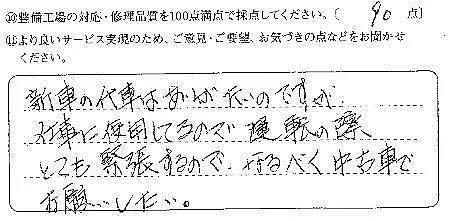 ⑩整備工場の対応・修理品質を100点満点で採点してください。〔 90 点〕
⑪より良いサービス実現のため、ご意見・ご要望、お気づきの点などをお聞かせ
ください。
新車の代車はありがたいのですが、
仕事に使用してるので運転の際
とても緊張するので、なるべく中古車で
お願いしたい。